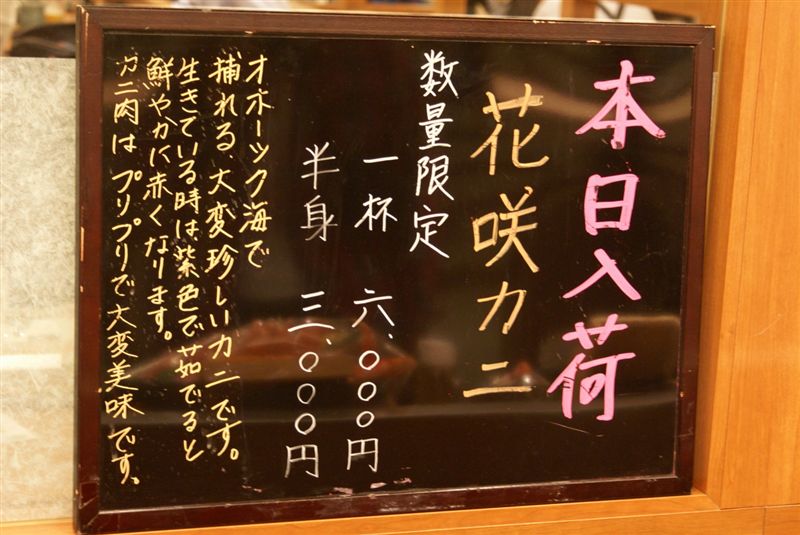 本日入荷
花咲カニ
数量限定
一杯 六、〇〇〇円
半身 三、〇〇〇円
オホーツク海で
捕れる、大変珍しいカニです。
生きている時は、紫色で茹でると
鮮やかに赤くなります。
カニ肉は プリプリで大変美味です、